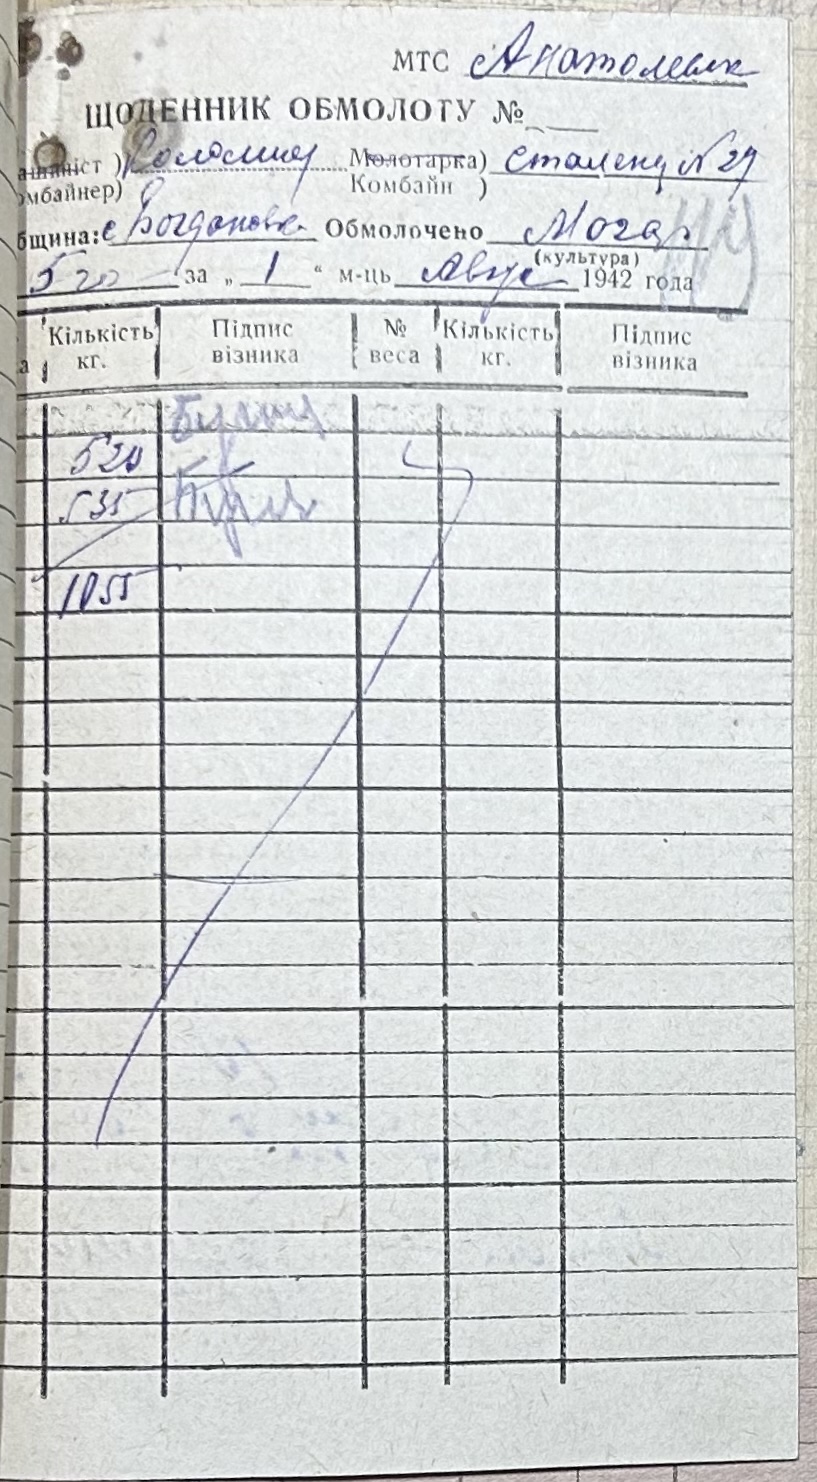 МТС Анатолевск
ЩОДЕННИК ОБМОЛОТУ №
ашиніст ) Молотарка) Сталенц №29
омбайнер) Комбайн )
бщина: с Богдановка Обмолочено Могар
(культура)
520 за „ 1 “ м-ць Авгус 1942 года
а Кількість кг. Підпис візника № веса Кількість кг. Підпис візника
520
535
1055